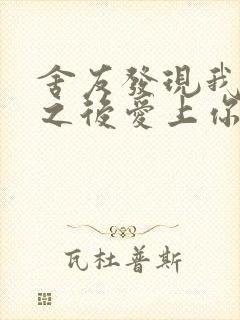 舍友發現我
之後愛上你
瓦杜普斯